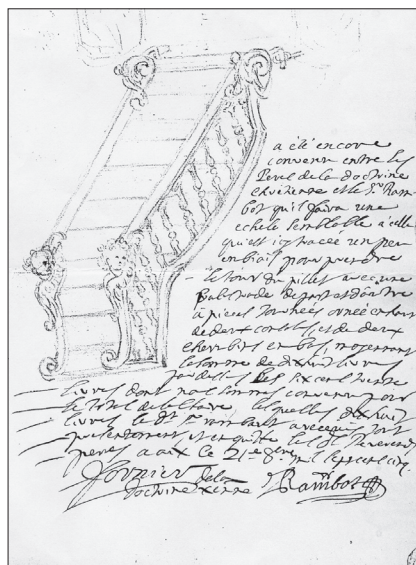 a été encore
convenu entre les
Peres de la doctrine
chretienne et le Sr Ram
bot qu'il faira une
echele semblable a celle
qui est icy tracée un peu
en biais pour prendre
le tour du avec une
Balustrade de part et d'autre
a pieces tournées ornée en bas
de deux consoles et de deux
cherubins en bas, moyenant
la somme de dixhuit livres
par dessus les six cent trente
livres dont nous sommes convenu pour
le total de la chaire, lesquelles dixhuit
livres le dt Sr rambot a receu tout
presentement et en quitte les dts Reverends
peres a aix le 21e 8bre mil sept cent cinq.
Fournier de la Rambot
doctrine xrenne